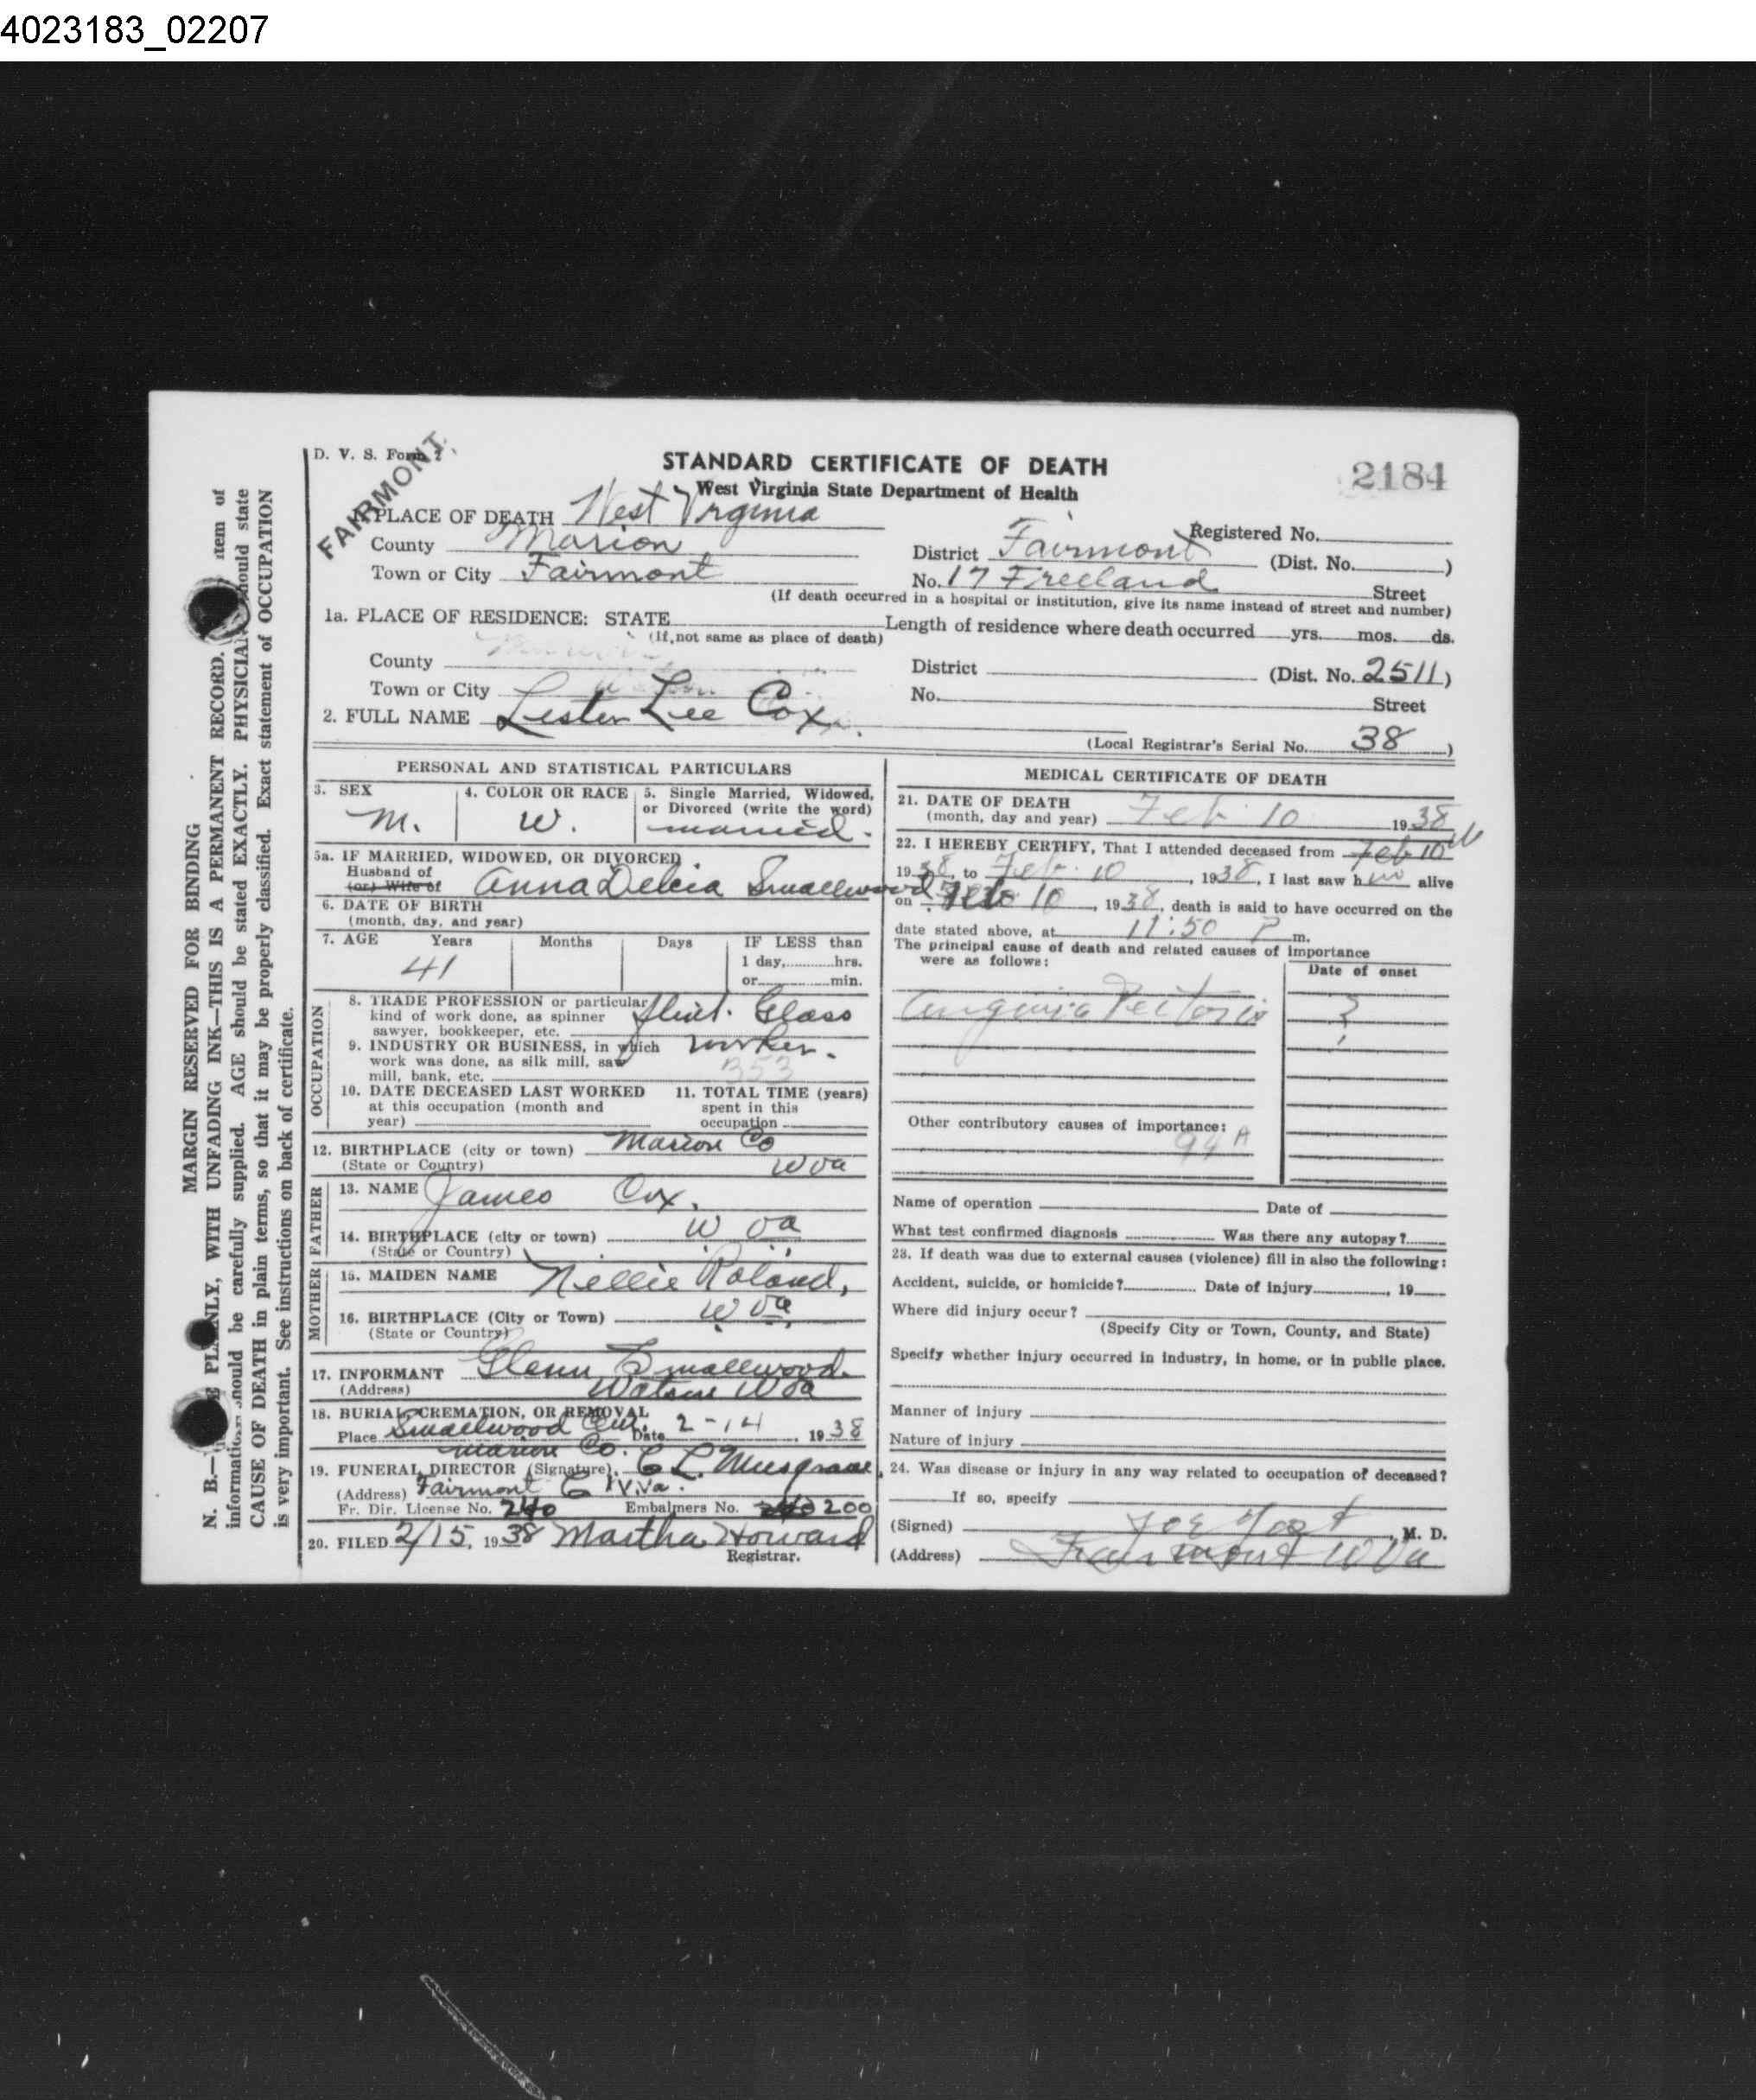 4023183_02207
D. V. S. Form
FAIRMONT.
STANDARD CERTIFICATE OF DEATH
2184
West Virginia State Department of Health
1. PLACE OF DEATH West Virginia
Registered No.
County Marion
District Fairmont (Dist. No. )
Town or City Fairmont
No. 17 Freeland Street
(If death occurred in a hospital or institution, give its name instead of street and number)
1a. PLACE OF RESIDENCE: STATE
Length of residence where death occurred yrs. mos. ds.
(If not same as place of death)
County
District (Dist. No. 2511)
Town or City
No. Street
2. FULL NAME Lester Lee Cox.
(Local Registrar's Serial No. 38 )
MARGIN RESERVED FOR BINDING
N. B.— PLAINLY, WITH UNFADING INK—THIS IS A PERMANENT RECORD. item of
information should be carefully supplied. AGE should be stated EXACTLY. PHYSICIAN should state
CAUSE OF DEATH in plain terms, so that it may be properly classified. Exact statement of OCCUPATION
is very important. See instructions on back of certificate.
PERSONAL AND STATISTICAL PARTICULARS
3. SEX
M.
4. COLOR OR RACE
W.
5. Single Married, Widowed,
or Divorced (write the word)
married.
5a. IF MARRIED, WIDOWED, OR DIVORCED
Husband of
(or) Wife of Anna Delcia Smallwood
6. DATE OF BIRTH
(month, day, and year)
7. AGE Years Months Days IF LESS than
41
1 day, hrs.
or min.
OCCUPATION
8. TRADE PROFESSION or particular
kind of work done, as spinner
sawyer, bookkeeper, etc. flint. Glass
9. INDUSTRY OR BUSINESS, in which
work was done, as silk mill, saw
mill, bank, etc. worker.
353
10. DATE DECEASED LAST WORKED
at this occupation (month and
year)
11. TOTAL TIME (years)
spent in this
occupation
12. BIRTHPLACE (city or town) Marion Co
(State or Country) W Va
FATHER
13. NAME James Cox.
14. BIRTHPLACE (city or town) W Va
(State or Country)
MOTHER
15. MAIDEN NAME Nellie Roland,
16. BIRTHPLACE (City or Town) W Va
(State or Country)
17. INFORMANT Glenn Smallwood.
(Address) Watson W Va
18. BURIAL, CREMATION, OR REMOVAL
Place Smallwood Cem. Date 2-14 1938
Marion Co.
19. FUNERAL DIRECTOR (Signature) C L. Musgrave
(Address) Fairmont W.Va.
Fr. Dir. License No. 240 Embalmers No. 200
20. FILED 2/15, 1938 Martha Howard
Registrar.
MEDICAL CERTIFICATE OF DEATH
21. DATE OF DEATH
(month, day and year) Feb 10 1938
22. I HEREBY CERTIFY, That I attended deceased from Feb 10
1938, to Feb. 10, 1938, I last saw him alive
on Feb 10, 1938, death is said to have occurred on the
date stated above, at 11:50 P m.
The principal cause of death and related causes of importance
were as follows:
Date of onset
Anginia Pectoris
?
Other contributory causes of importance:
94 A
Name of operation Date of
What test confirmed diagnosis Was there any autopsy?
23. If death was due to external causes (violence) fill in also the following:
Accident, suicide, or homicide? Date of injury , 19
Where did injury occur?
(Specify City or Town, County, and State)
Specify whether injury occurred in industry, in home, or in public place.
Manner of injury
Nature of injury
24. Was disease or injury in any way related to occupation of deceased?
If so, specify
(Signed) Joe Yost, M. D.
(Address) Fairmont W Va